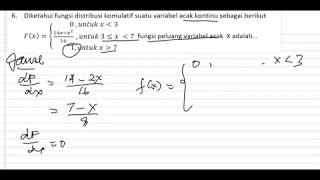 6. Diketahui fungsi distribusi komulatif suatu variabel acak kontinu sebagai berikut
0 ,untuk x < 3
F(x) = { 14x-x²/16 , untuk 3 ≤ x < 7 fungsi peluang variabel acak X adalah...
1,untuk x > 7
Jawab
dF/dx = 14 - 2x/16
f(x) = { 0 , . x < 3
= 7 - x/8
dF/dx = 0